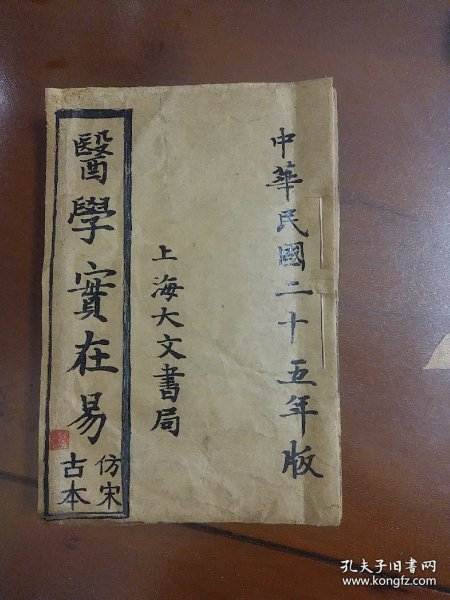 中華民國二十五年版
上海大文書局
醫學實在易
仿宋
古本
孔夫子旧书网
www.kongfz.com